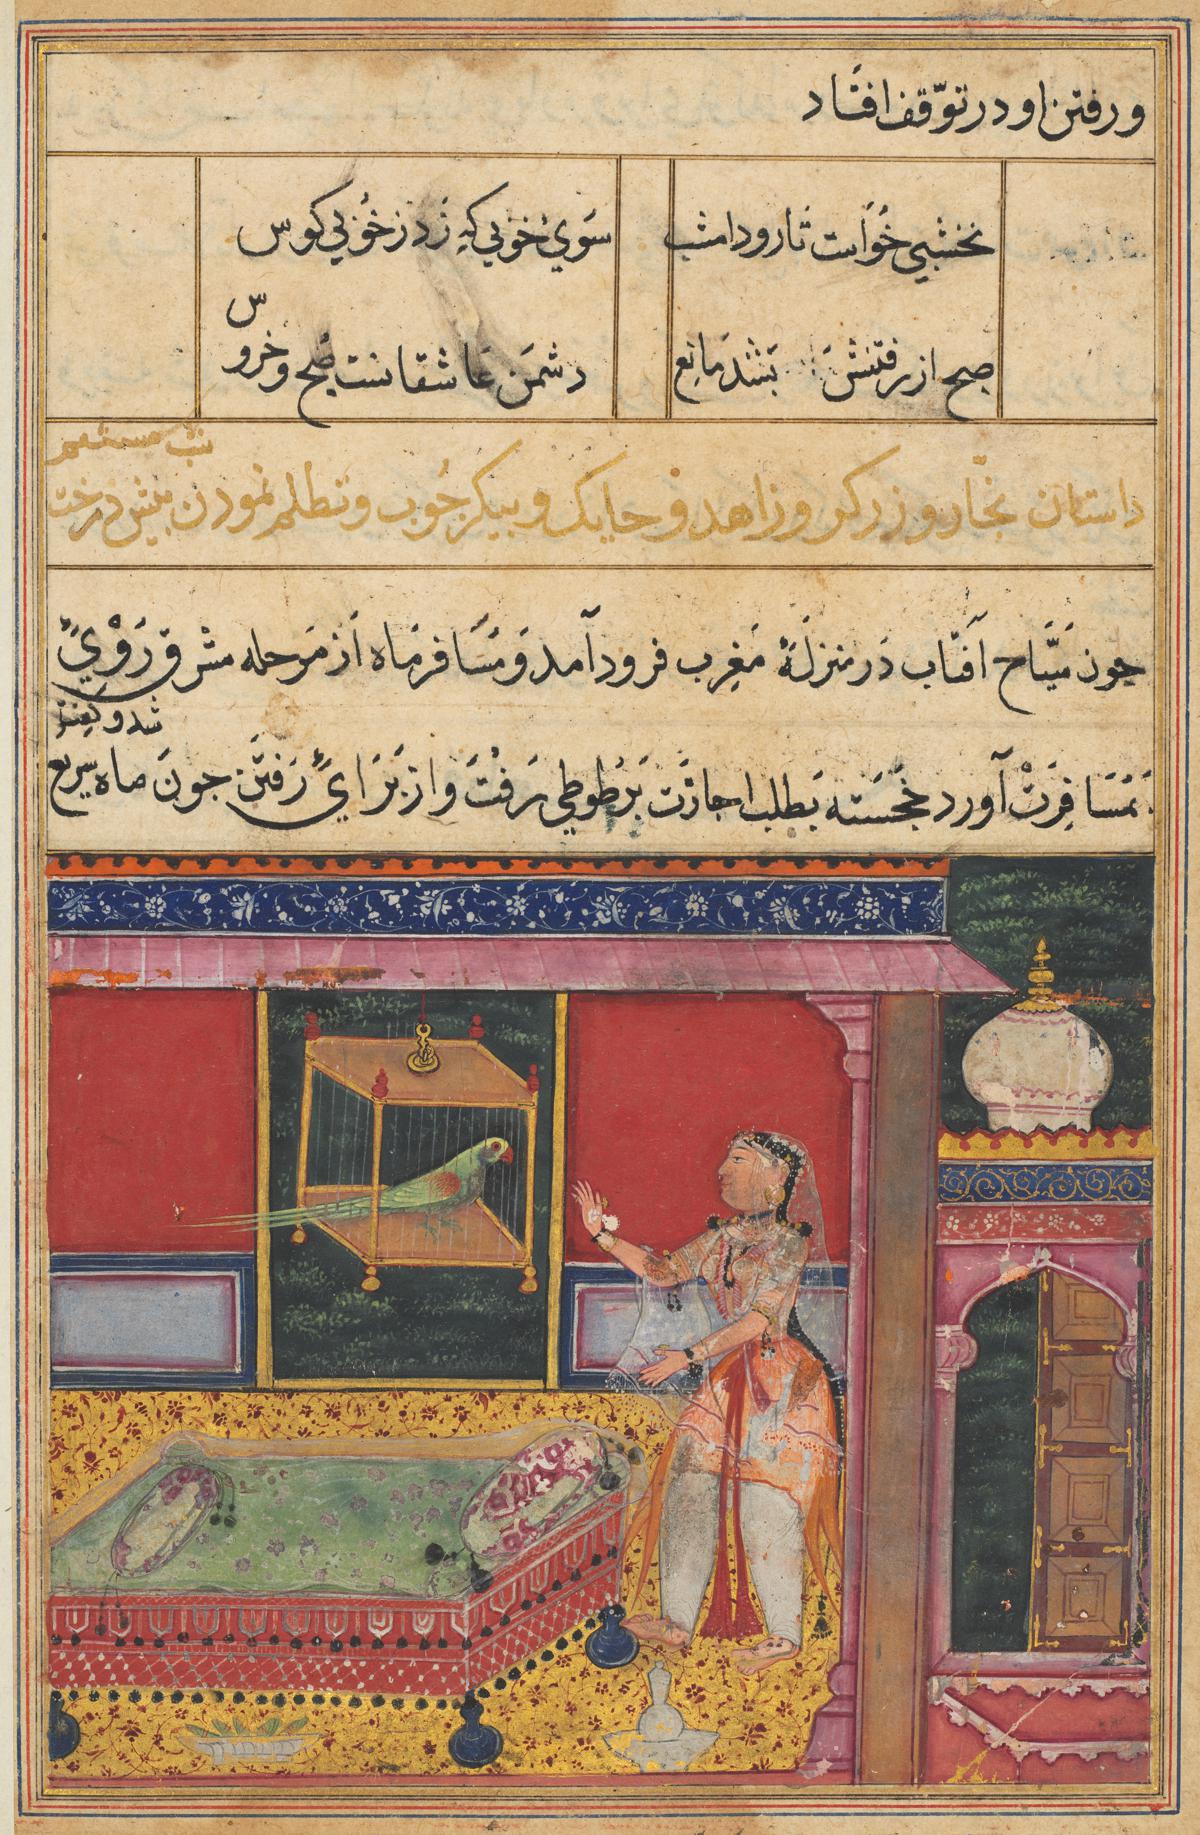 ورفتن او در توّقف افتاد
نخشبی خواست تا رود امشب سوی خوبی که زد ز خوبی کوس
صبح از رفتنش بشد مانع دشمن عاشقانست صبح و خروس
داستان نجّار و زرکر و زاهد و حایک و پیکر جوب و تظلم نمودن پیش درخت
شب
جون سیّاح آفتاب در منزلهٔ مغرب فرود آمد و مسافر ماه از مرحله مشرق روی
بمسافرت آورد خجسته بطلب اجازت بر طوطی رفت و از برای رفتن جون ماه سریع
شد و کفت